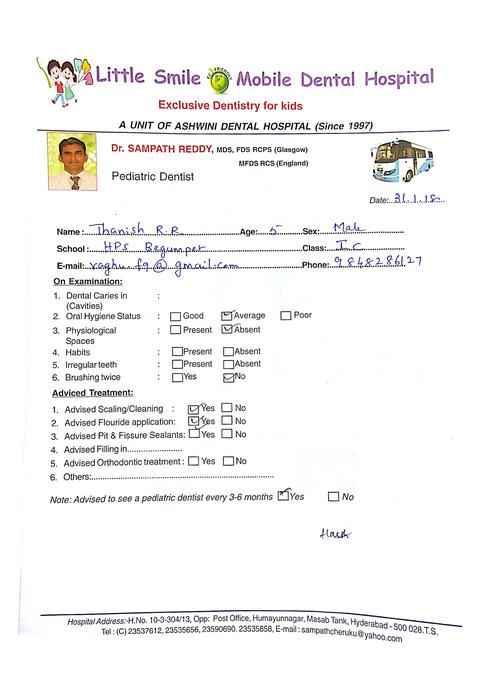 Little Smile ECO FRIENDLY Mobile Dental Hospital
Exclusive Dentistry for kids
A UNIT OF ASHWINI DENTAL HOSPITAL (Since 1997)
Dr. SAMPATH REDDY, MDS, FDS RCPS (Glasgow)
MFDS RCS (England)
Pediatric Dentist
Date: 31.1.18
Name: Thanish R.R Age: 5 Sex: Male
School: HPS Begumpet Class: I c
E-mail: raghu.f9@gmail.com Phone: 9848286127
On Examination:
1. Dental Caries in :
(Cavities)
2. Oral Hygiene Status : Good Average Poor
3. Physiological : Present Absent
Spaces
4. Habits : Present Absent
5. Irregular teeth : Present Absent
6. Brushing twice : Yes No
Adviced Treatment:
1. Advised Scaling/Cleaning : Yes No
2. Advised Flouride application: Yes No
3. Advised Pit & Fissure Sealants: Yes No
4. Advised Filling in......................
5. Advised Orthodontic treatment : Yes No
6. Others:..............................................................
Note: Advised to see a pediatric dentist every 3-6 months Yes No
Hospital Address:-H.No. 10-3-304/13, Opp: Post Office, Humayunnagar, Masab Tank, Hyderabad - 500 028.T.S.
Tel : (C) 23537612, 23535656, 23590690. 23535858, E-mail : sampathcheruku@yahoo.com